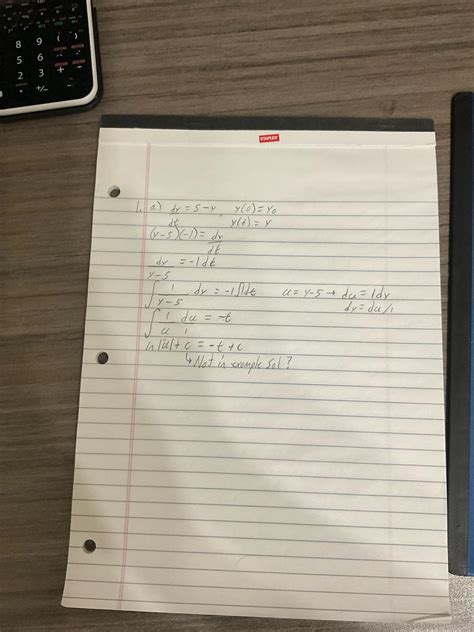 8 9 ( )
5 6
2 3 +
+/-
STAPLES
1. a) dy/dt = 5-y, y(0)=y0
y(t)=y
(y-5)(-1) = dy/dt
dy/y-5 = -1dt
∫ 1/y-5 dy = -1∫1dt u=y-5 → du=1dy
dy=du/1
∫ 1/u du/1 = -t
ln|u|+c = -t+c
↳ Not in example sol?